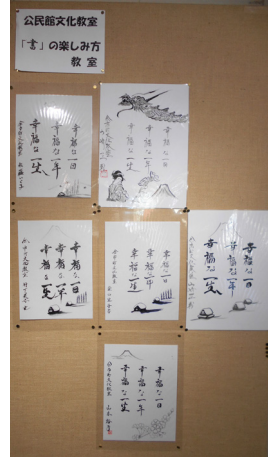 公民館文化教室
「書」の楽しみ方
教室
幸福な一日
幸福な一年
幸福な一生
幸福な一日
幸福な一年
幸福な一生
幸福な一日
幸福な一年
幸福な一生
幸福な一日
幸福な一年
幸福な一生
幸福な一日
幸福な一年
幸福な一生
幸福な一日
幸福な一年
幸福な一生